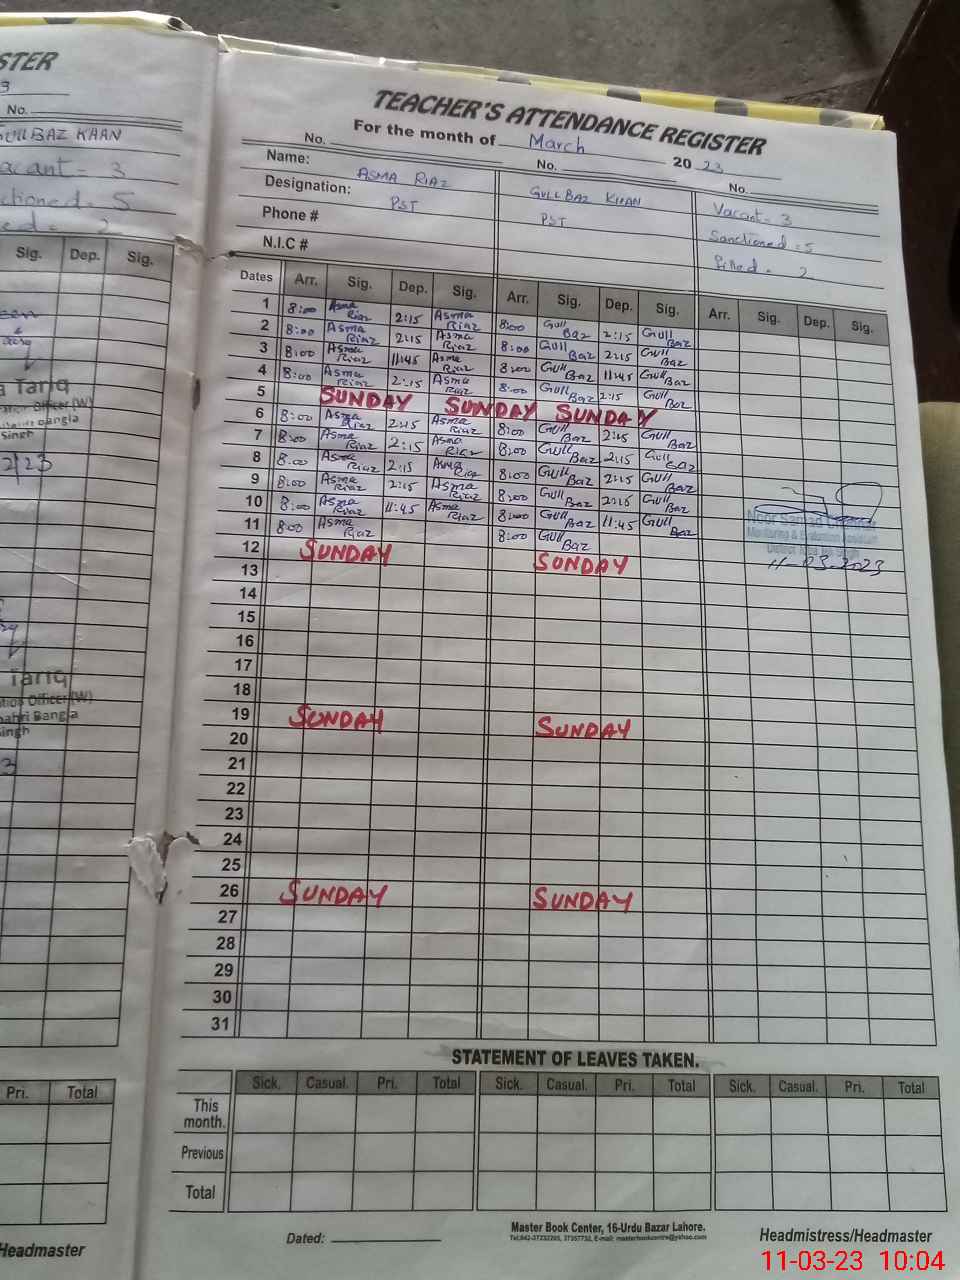 STER
3
No.
GULLBAZ KAAN
acant - 3
ctioned - 5
ed - 2
Sig. Dep. Sig.
Tariq
Officer (W)
Bangla
Singh
2/23
Tariq
tion Officer (W)
pahri Bangla
ingh
3
Pri. Total
Headmaster
TEACHER'S ATTENDANCE REGISTER
For the month of March 2023
No. No. No.
Name: ASMA RIAZ GULLBAZ KHAN Vacant - 3
Designation: PST PST Sanctioned = 5
Phone # Filled - 2
N.I.C #
Dates Arr. Sig. Dep. Sig. Arr. Sig. Dep. Sig. Arr. Sig. Dep. Sig.
1 8:00 Asma Riaz 2:15 Asma Riaz 8:00 Gull Baz 2:15 Gull Baz
2 8:00 Asma Riaz 2:15 Asma Riaz 8:00 Gull Baz 2:15 Gull Baz
3 8:00 Asma Riaz 11:45 Asma Riaz 8:00 Gull Baz 11:45 Gull Baz
4 8:00 Asma Riaz 2:15 Asma Riaz 8:00 Gull Baz 2:15 Gull Baz
5 SUNDAY SUNDAY SUNDAY
6 8:00 Asma Riaz 2:15 Asma Riaz 8:00 Gull Baz 2:15 Gull Baz
7 8:00 Asma Riaz 2:15 Asma Riaz 8:00 Gull Baz 2:15 Gull Baz
8 8:00 Asma Riaz 2:15 Asma Riaz 8:00 Gull Baz 2:15 Gull Baz
9 8:00 Asma Riaz 2:15 Asma Riaz 8:00 Gull Baz 2:15 Gull Baz
10 8:00 Asma Riaz 11:45 Asma Riaz 8:00 Gull Baz 11:45 Gull Baz
11 8:00 Asma Riaz 8:00 Gull Baz
Noor Samad
Monitoring & Evaluation Assistant
District
11-03-2023
12 SUNDAY SUNDAY
13
14
15
16
17
18
19 SUNDAY SUNDAY
20
21
22
23
24
25
26 SUNDAY SUNDAY
27
28
29
30
31
STATEMENT OF LEAVES TAKEN.
Sick. Casual. Pri. Total Sick. Casual. Pri. Total Sick. Casual. Pri. Total
This month.
Previous
Total
Dated:
Master Book Center, 16-Urdu Bazar Lahore.
Headmistress/Headmaster
11-03-23 10:04